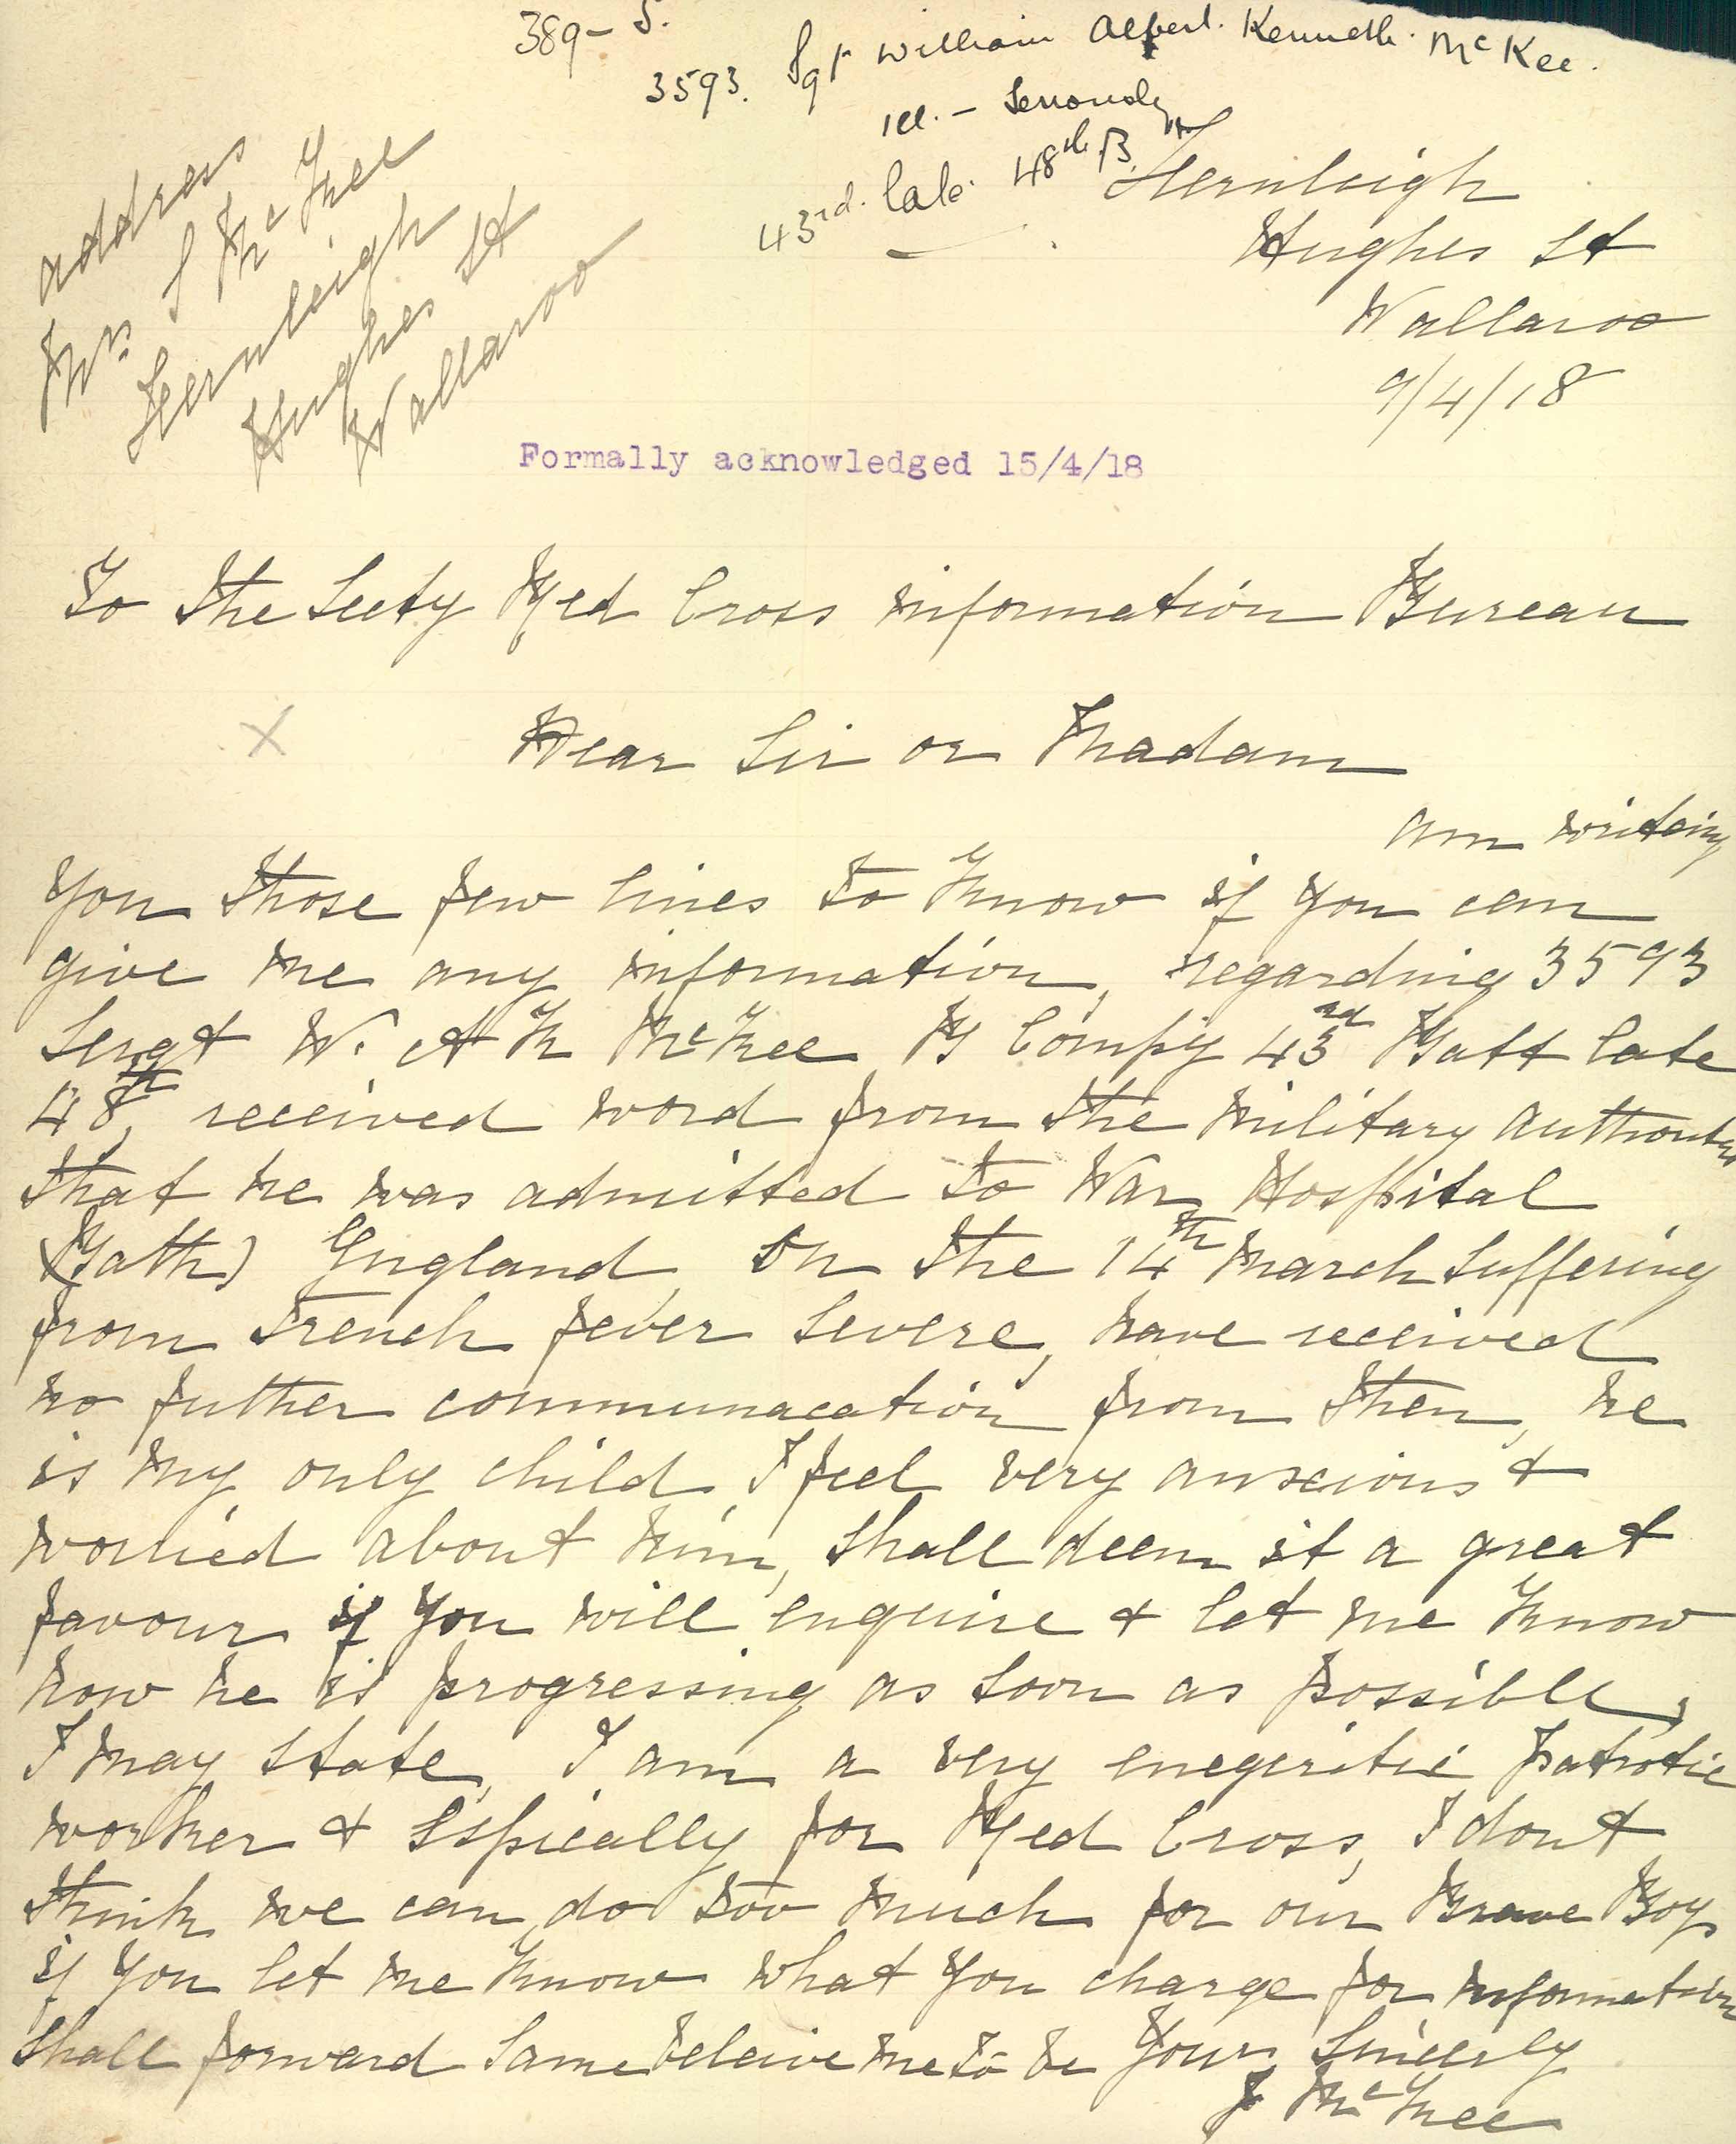 389- S.
3593. Sgt William Albert. Kenneth. McKee.
ill. - Seriously
43rd. late. 48th B
address
Mrs. J McKee
Fernleigh
Hughes St
Wallaroo
Fernleigh
Hughes St
Wallaroo
9/4/18
Formally acknowledged 15/4/18
To The Secty Red Cross information Bureau
X
Dear Sir or Madam
am writing
you those few lines to know if you can
give me any information, regarding 3593
Sergt W. A K McKee B Compy 43rd Batt late
48th, received word from the military
that he was admitted to War Hospital
(Bath) England, on the 14th March suffering
from trench fever severe, have received
no futher communacation from then, he
is my only child, I feel very anxcious +
worried about him, shall deem it a great
favour if you will enquire + let me know
how he is progressing as soon as possible,
I may state, I am a very enegeritic patriotic
worker + Espically for Red Cross, I dont
think we can do too much for our Brave Boys
if you let me know what you charge for information
shall forward same beleive me to be Yours Sincerly
J McKee